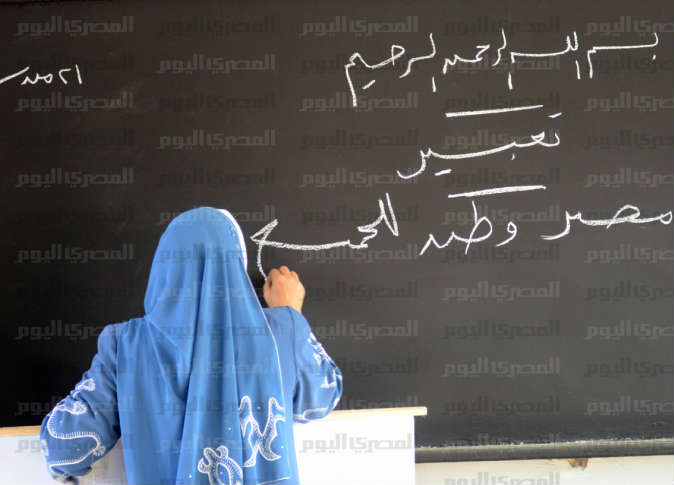 بسم الله الرحمن الرحيم
٢١ مدر
تعبير
مصر وطن للجميع
المصري اليوم